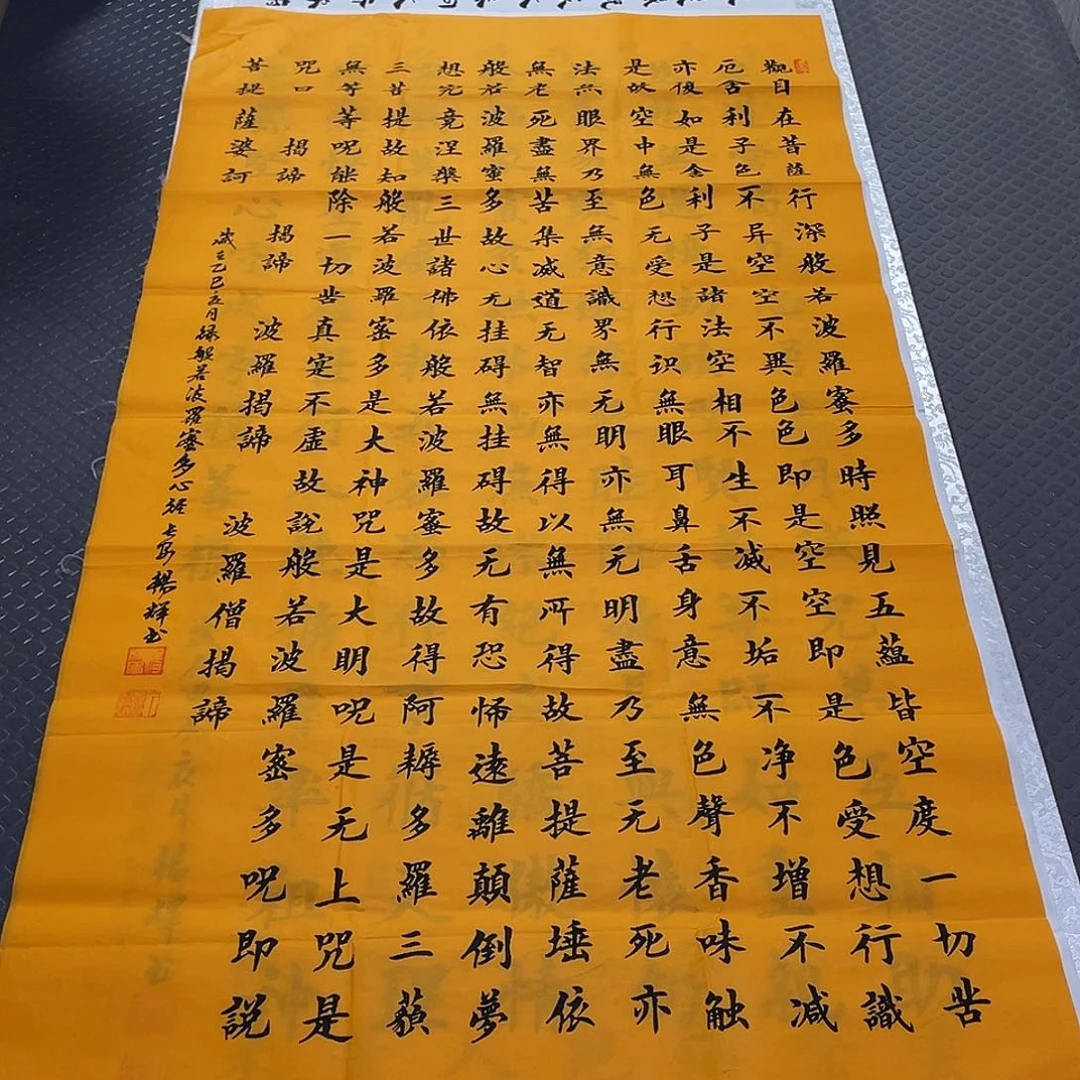 觀自在菩薩行深般若波羅蜜多時照見五蘊皆空度一切苦
厄舍利子色不异空空不異色色即是空空即是色受想行識
亦復如是舍利子是諸法空相不生不滅不垢不净不增不减
是故空中無色无受想行识無眼耳鼻舌身意無色聲香味触
法無眼界乃至無意識界無无明亦無无明盡乃至无老死亦
無老死盡無苦集滅道无智亦無得以無所得故菩提薩埵依
般若波羅蜜多故心无挂碍無挂碍故无有恐怖遠離顛倒夢
想究竟涅槃三世諸佛依般若波羅蜜多故得阿耨多羅三藐
三菩提故知般若波羅蜜多是大神咒是大明呪是无上咒是
無等等呪能除一切苦真实不虚故說般若波羅蜜多呪即說
咒曰 揭諦 揭諦 波羅揭諦 波羅僧揭諦
菩提薩婆訶
歲在乙巳五月録般若波羅蜜多心經长安楊輝书